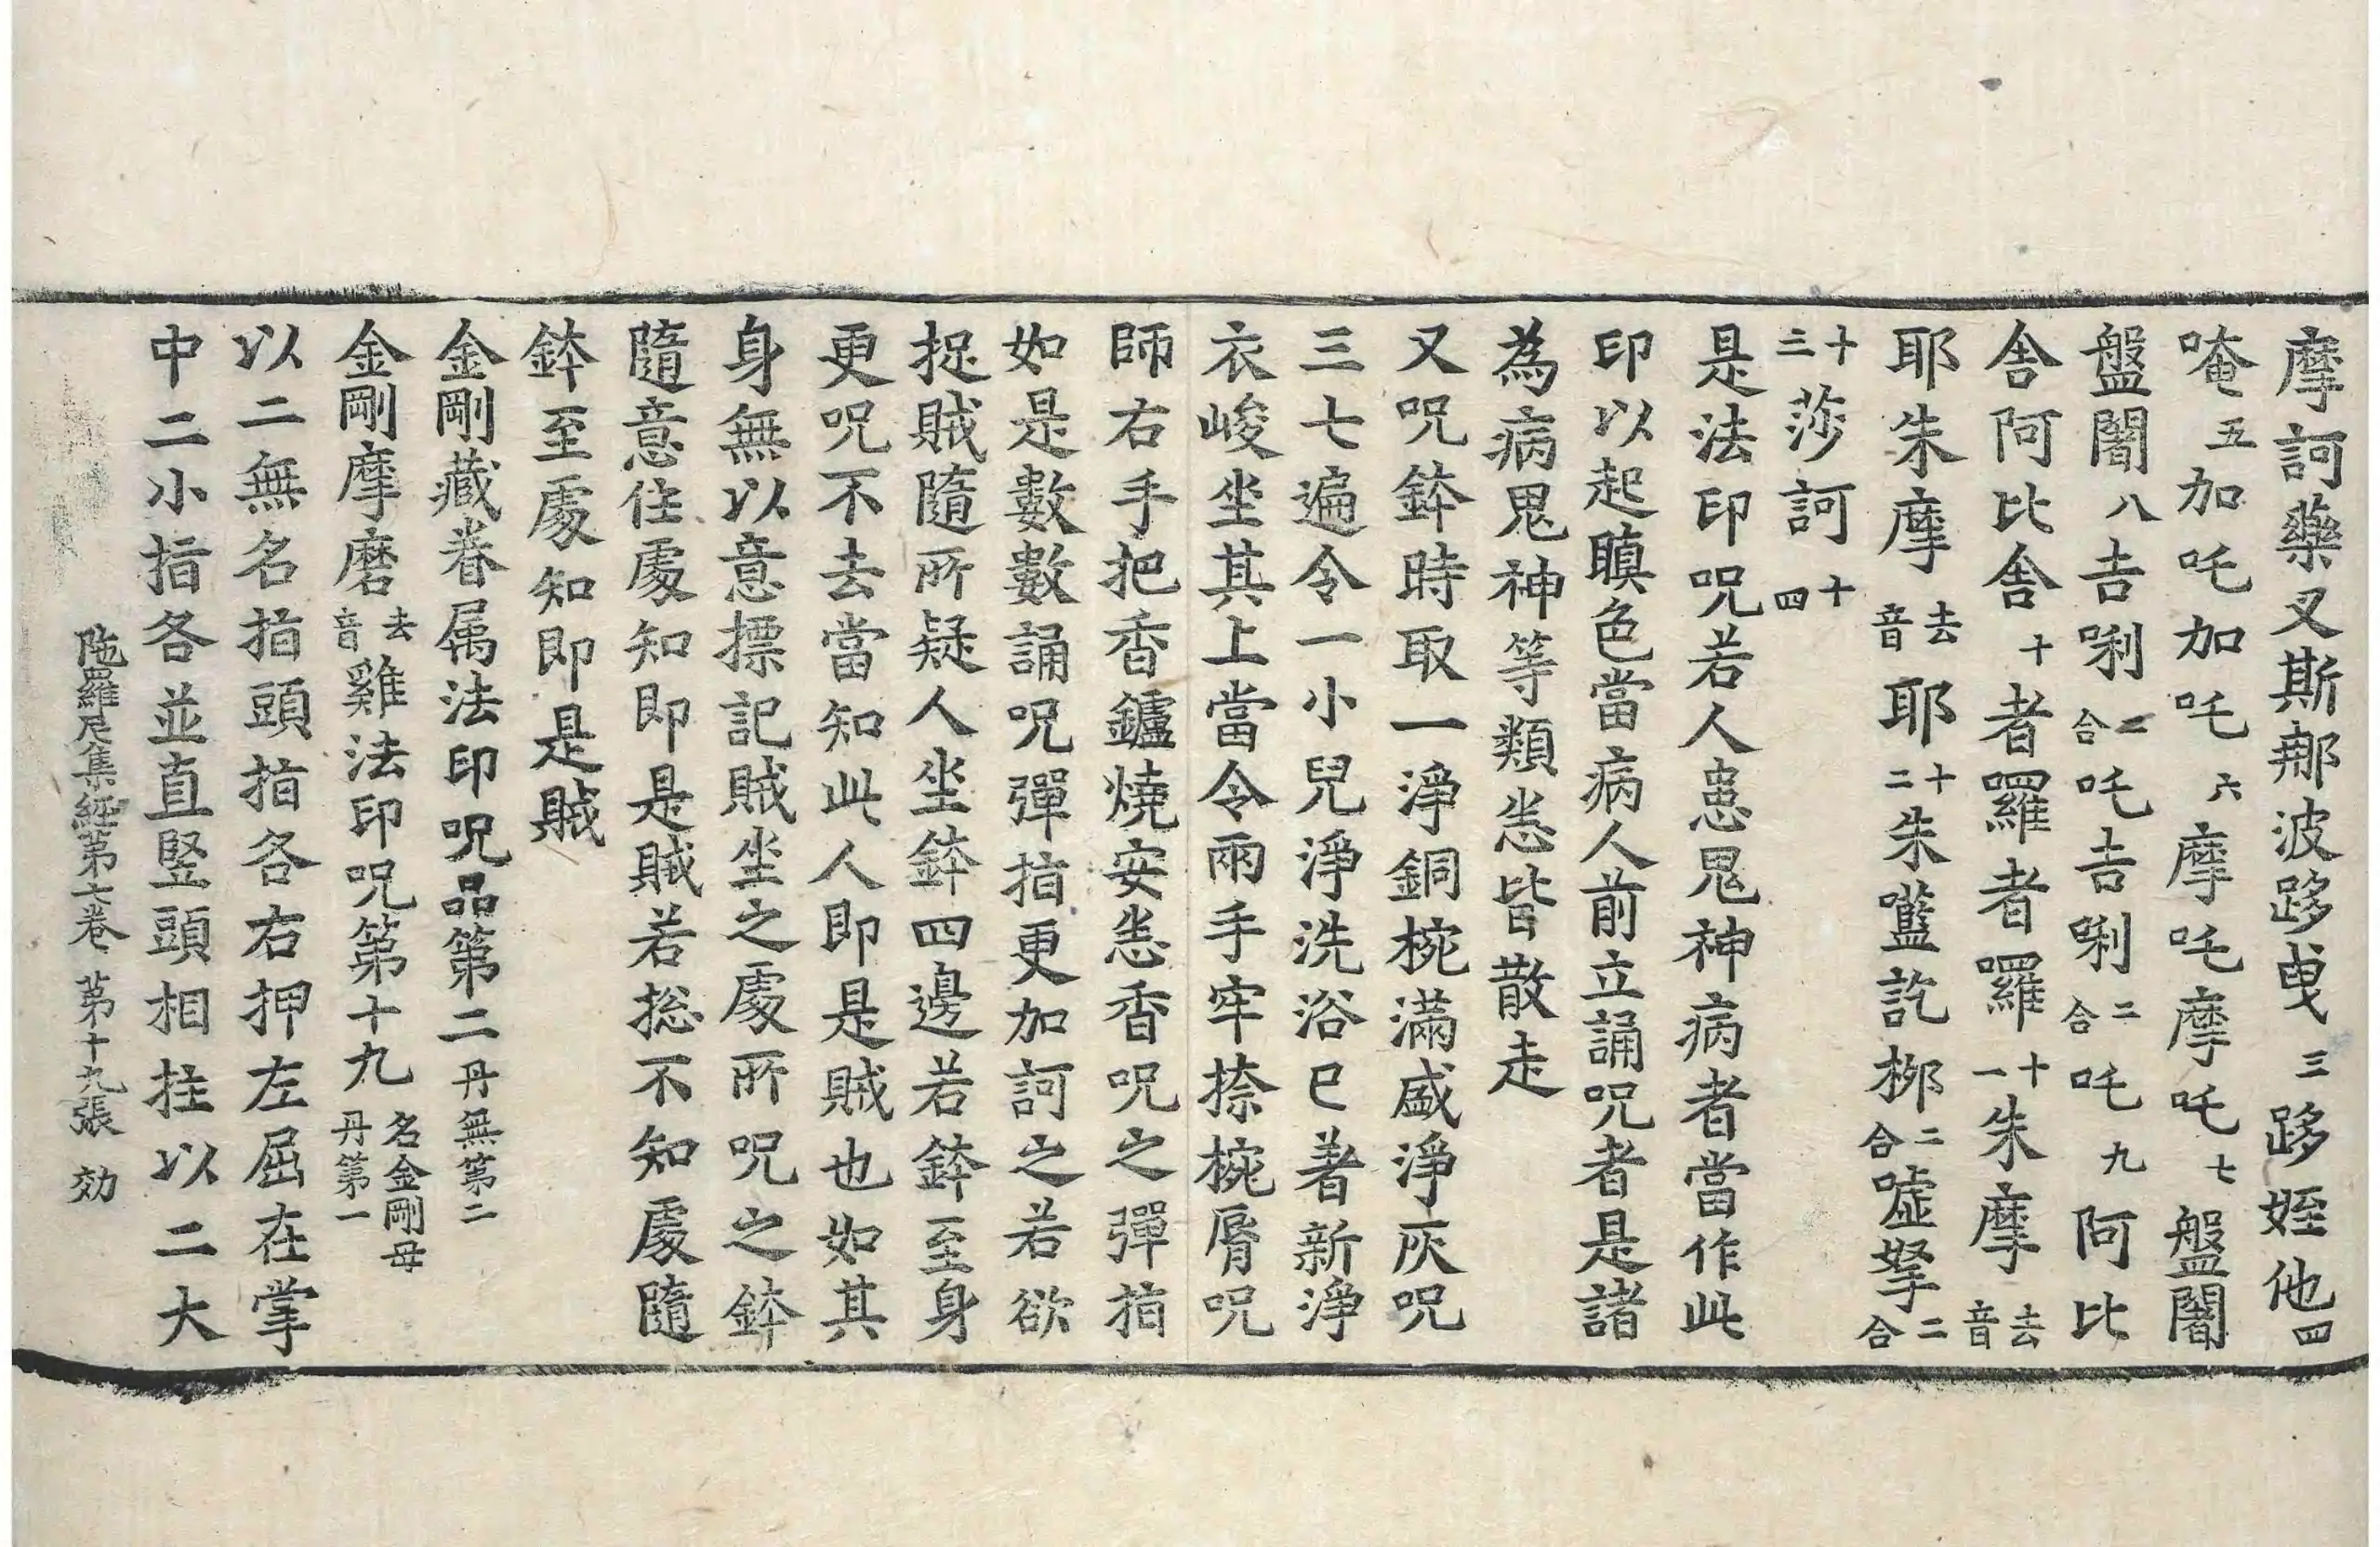 摩訶藥叉斯那波跢曳三跢姪他四
唵五加吒加吒六摩吒摩吒七盤闍
盤闍八吉唎二合吒吉唎二合吒九阿比
舍阿比舍十者囉者囉十一朱摩去音
耶朱摩去音耶十二朱嚂訖梛二合嘘拏二合
十三莎訶十四
是法印呪若人患鬼神病者當作此
印以起瞋色當病人前立誦呪者是諸
為病鬼神等類悉皆散走
又呪鉢時取一淨銅椀滿盛淨灰呪
三七遍令一小兒淨洗浴已著新淨
衣峻坐其上當令兩手牢捺椀脣呪
師右手把香鑪燒安悉香呪之彈指
如是數數誦呪彈指更加訶之若欲
捉賊隨所疑人坐鉢四邊若鉢至身
更呪不去當知此人即是賊也如其
身無以意摽記賊坐之處所呪之鉢
隨意住處知即是賊若揔不知處隨
鉢至處知即是賊
金剛藏眷属法印呪品第二丹無第二
金剛摩磨去音雞法印呪第十九名金剛母丹第一
以二無名指頭指各右押左屈在掌
中二小指各並直竪頭相拄以二大
陁羅尼集經第七卷 第十九張 効